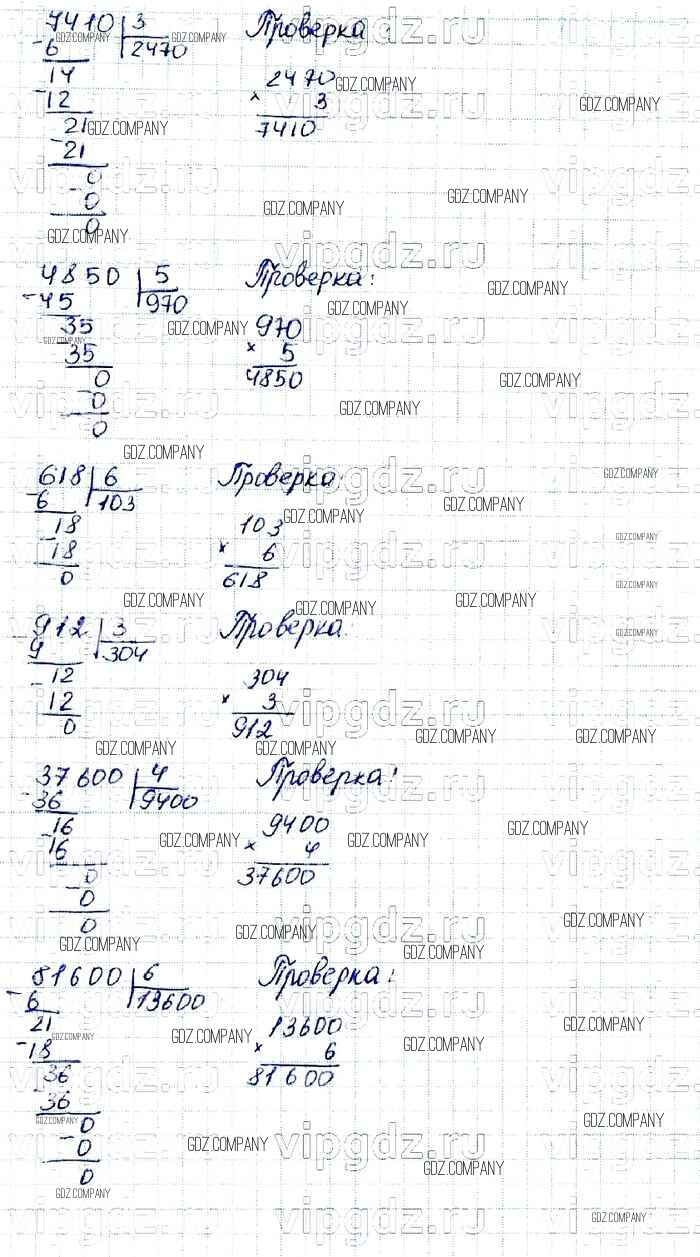 7410 | 3 Проверка
- 6 2470
14 2470
- 12 × 3
21 7410
- 21
0
- 0
0
4850 | 5 Проверка:
- 45 970
35 970
- 35 × 5
0 4850
- 0
0
618 | 6 Проверка:
- 6 103
18 103
- 18 × 6
0 618
912 | 3 Проверка:
- 9 304
- 12 304
12 × 3
0 912
37600 | 4 Проверка:
- 36 9400
16 9400
- 16 × 4
0 37600
- 0
0
81600 | 6 Проверка:
- 6 13600
21 13600
- 18 × 6
36 81600
- 36
0
- 0
0
vipgdz.ru
GDZ.COMPANY